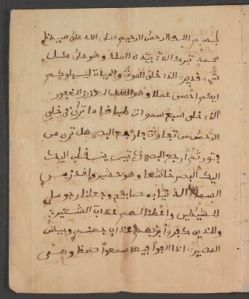 بسم الله الرحمن الرحيم صلى الله على
محمد تبرك الذي بيده الملك وهو على كل
شيء قدير الذي خلق الموت والحيات ليبلوكم
ايكم احسن عملا وهو العزيز الغفور
الذي خلق سبع سموات طباقا ما ترى في خلق
الرحمن من تفاوت فارجع البصر هل ترى من
فطور ثم ارجع البصر كرتين ينقلب اليك
اليك البصر خاسئا وهو حسير ولقد زينا
السماء الدنيا بمصابيح وجعلنها رجوما
للشيطين واعتدنا لهم عذاب السعير
وللذين كفروا بربهم عذاب جهنم وبيس
المصير اذا القوا فيها سمعوا وهي